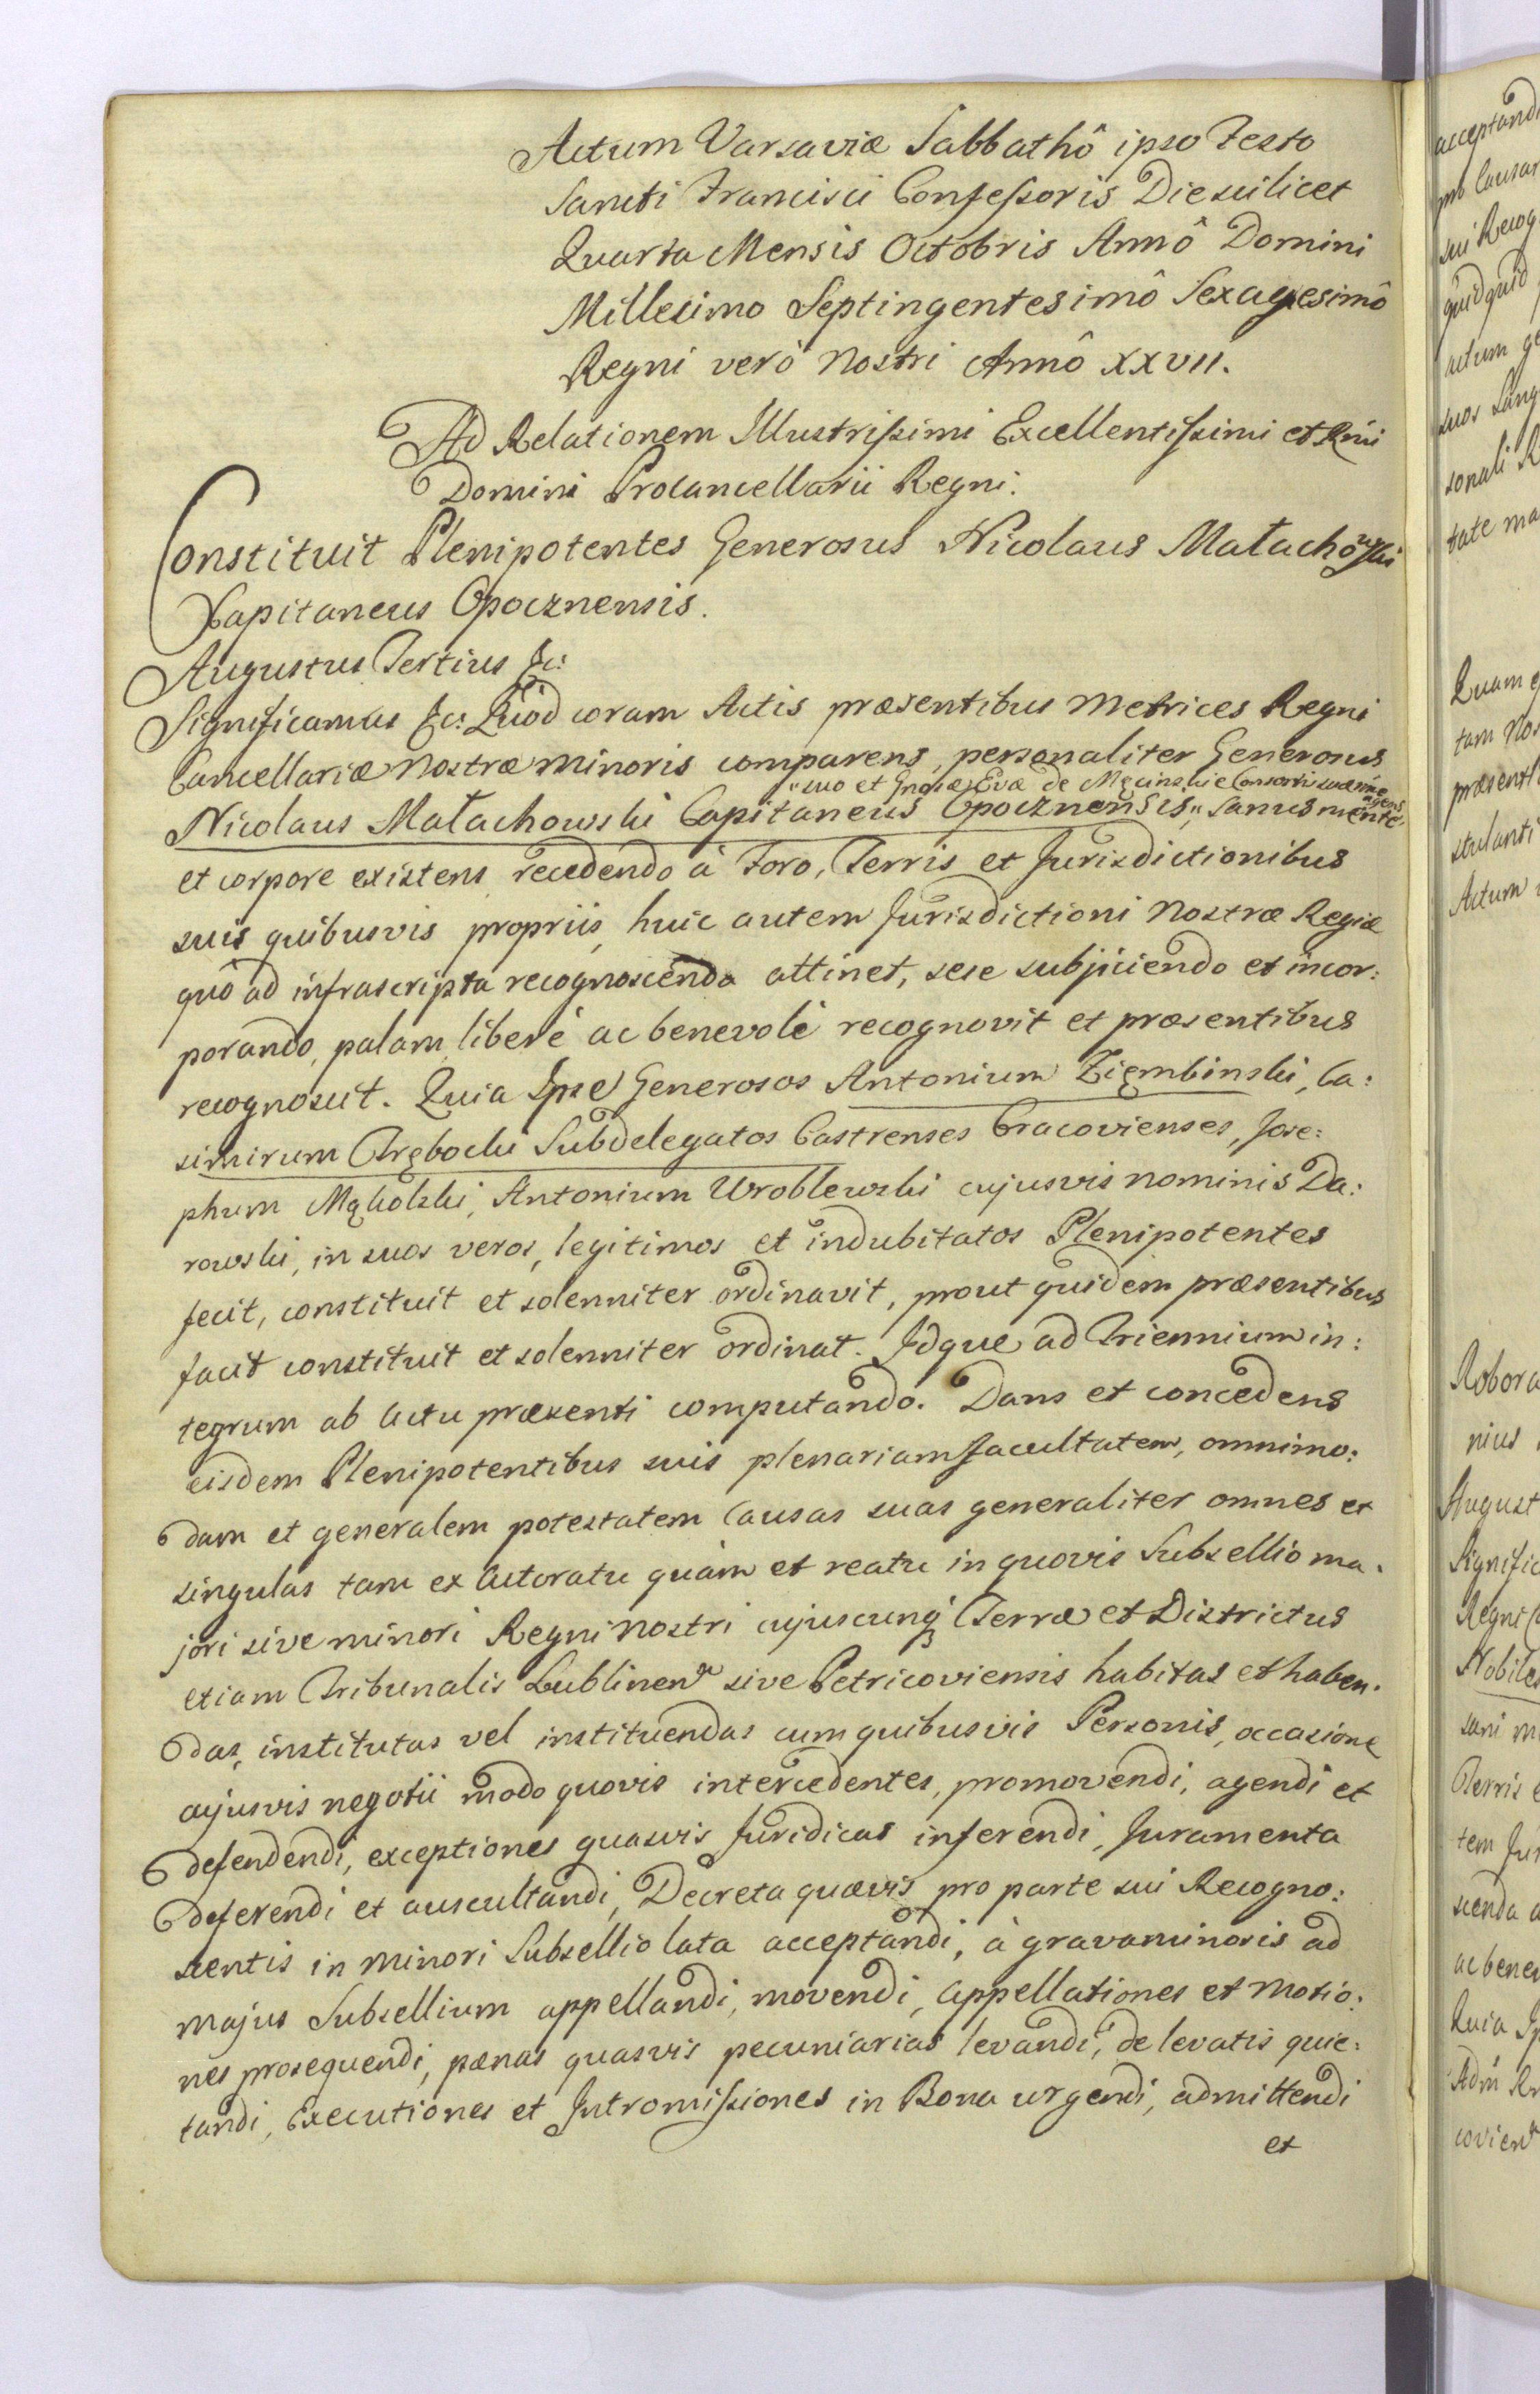 Actum Varsaviæ Sabbathô ipso Festo
Sancti Francisci Confessoris Die scilicet
Quarta Mensis Octobris Annô Domini
Millesimo Septingentesimô Sexagesimô
Regni verò Nostri Annô XXVII.
Ad Relationem Illustrissimi Excellentissimi et Rmi
Domini Procancellarii Regni.
Constituit Plenipotentes Generosus Nicolaus Małachowski
Capitaneus Opocznensis.
Augustus Tertius &c:
Significamus &c: Quod coram Actis præsentibus Metrices Regni
Cancellariæ Nostræ Minoris comparens, personaliter Generosus
"suo et Gnosæ Evæ de Męcinskie Consortis suæ nne agens
Nicolaus Małachowski Capitaneus Opocznensis," sanus mente
et corpore existens recedendo à Foro, Terris et Jurisdictionibus
suis quibusvis propriis, huic autem Jurisdictioni Nostræ Regiæ
quò ad infrascripta recognoscenda attinet, sese subjiciendo et incor:
porando, palam liberè ac benevolè recognovit et præsentibus
recognoscit. Quia Ipse Generosos Antonium Ziębinski, Ca:
simirum Trębocki Subdelegatos Castrenses Cracovienses, Jose:
phum Mąkolski, Antonium Wroblewski cujusvis nominis Da:
rowski, in suos veros, legitimos et indubitatos Plenipotentes
fecit, constituit et solenniter ordinavit, prout quidem præsentibus
facit constituit et solenniter ordinat. Idque ad Triennium in:
tegrum ab Actu præsenti computando. Dans et concedens
eisdem Plenipotentibus suis plenariam facultatem, omnimo:
dam et generalem potestatem Causas suas generaliter omnes et
singulas tam ex Actoratu quàm et reatu in quovis Subsellio ma:
jori sive minori Regni Nostri cujuscunq; Terræ et Districtus
etiam Tribunalis Lublinen sive Petricoviensis habitas et haben:
das, institutas vel instituendas cum quibusvis Personis, occasione
cujusvis negotii modo quovis intercedentes, promovendi, agendi et
defendendi, exceptiones quasvis Juridicas inferendi, Juramenta
deferendi et auscultandi, Decreta quævis pro parte sui Recogno:
scentis in minori Subsellio lata acceptandi, à gravaminosis ad
majus Subsellium appellandi, movendi, appellationes et Motio:
nes prosequendi, pænas quasvis pecuniarias levandi, de levatis quie:
tandi, Executiones et Intromissiones in Bona urgendi, admittendi
et